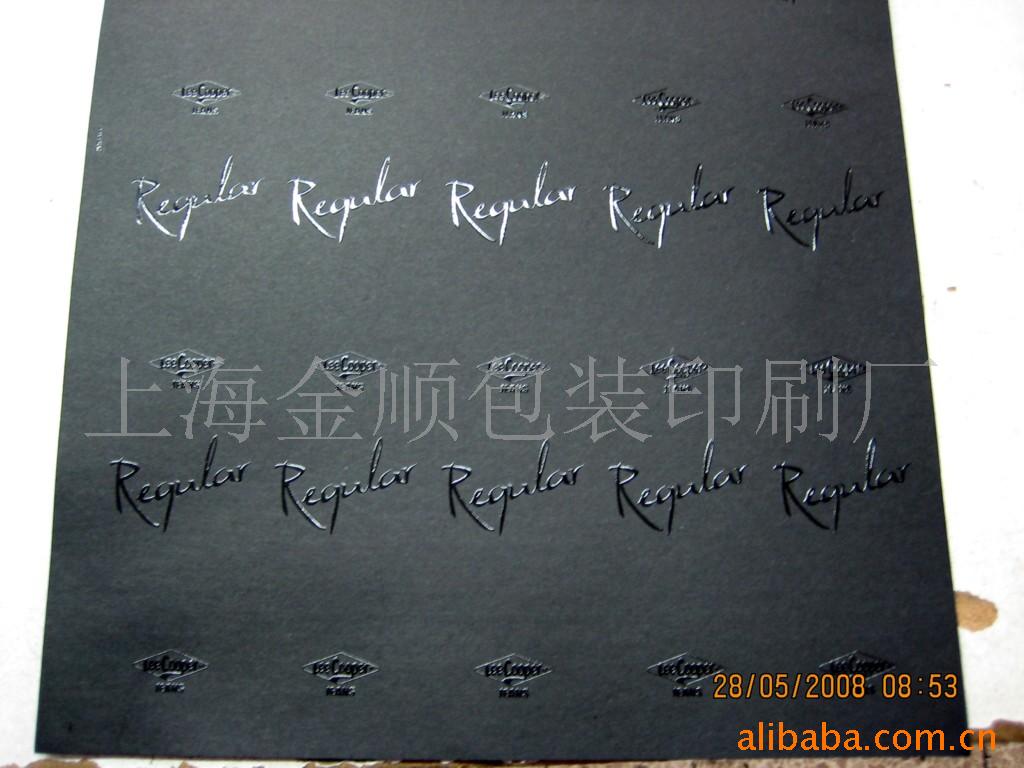 Lee Cooper Lee Cooper Lee Cooper Lee Cooper Lee Cooper
JEANS JEANS JEANS JEANS JEANS
Regular Regular Regular Regular Regular
Lee Cooper Lee Cooper Lee Cooper Lee Cooper Lee Cooper
JEANS JEANS JEANS JEANS JEANS
上海金顺包装印刷厂
Regular Regular Regular Regular Regular
Lee Cooper Lee Cooper Lee Cooper Lee Cooper Lee Cooper
JEANS JEANS JEANS JEANS JEANS
28/05/2008 08:53
alibaba.com.cn